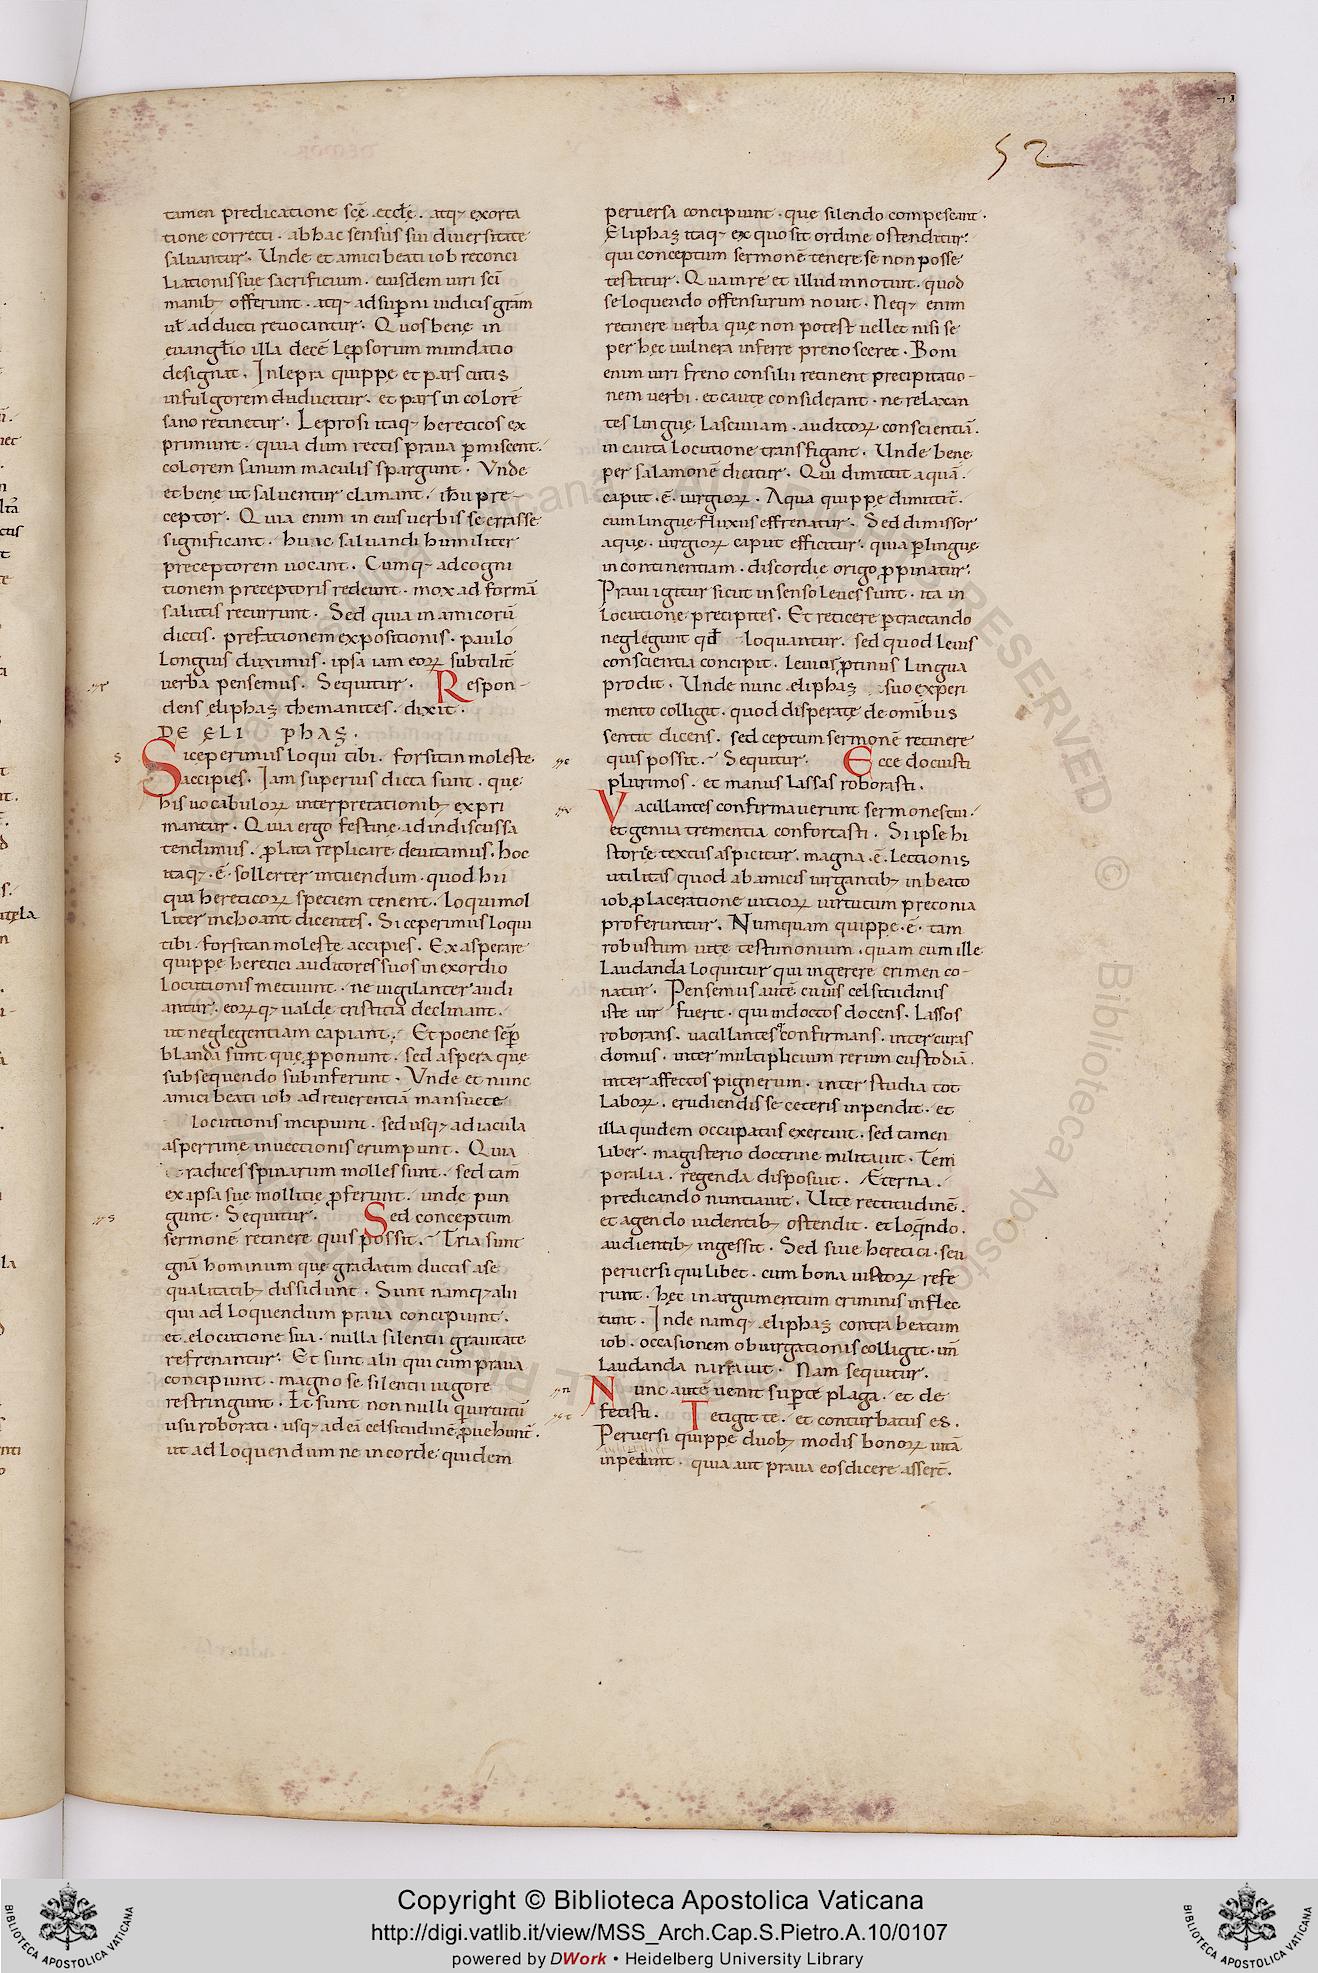 52
tamen predicatione scē eccłę. atq; exorta
tione correcti. ab hac sensus sui diuersitate
saluantur. Unde et amici beati iob reconci
liationis suę sacrificium. eiusdem uiri sci̅
manib; offerunt. atq; ad sup̅ni iudicis gr̅am
ut̅ ad ducti reuocantur. Quos bene in
euangl̅io illa dece̅ lęprorum mundatio
designat. In lepra quippę et pars cutis
in fulgorem ducitur. et pars in colore̅
sano retinetur. Leprosi itaq; hereticos ex
primunt. quia dum rectis praua p̅miscent.
colorem sanum maculis spargunt. Vnde
et bene ut saluentur clamant. ih̅u pre-
ceptor. Quia enim in eius uerbis se errasse
significant. hunc saluandi humiliter
preceptorem uocant. Cumq; ad cogni
tionem preceptoris redeunt. mox ad forma̅
salutis recurrunt. Sed quia in amicoru̅
dictis. prefationem expositionis. paulo
longius duximus. ipsa iam eoꝝ subtilit̅
uerba pensemus. Sequitur. Respon-
dens eliphaz themanites. dixit.
DE ELIPHAZ.
Si ceperimus loqui tibi. forsitan moleste
accipies. Iam superius dicta sunt. que
his uocabuloꝝ interpretationib; expri
mantur. Quia ergo festinę ad indiscussa
tendimus. p̅lata replicare deuitamus. hoc
itaq; .e̅. sollerter intuendum. quod hii
qui hereticoꝝ speciem tenent. loqui mol
liter inchoant dicentes. Si ceperimus loqui
tibi. forsitan moleste accipies. Exasperare
quippe heretici auditores suos in exordio
locutionis metuunt. ne uigilanter audi
antur. eoꝝq; ualde tristitia declinant.
ut neglegentiam capiant. Et poene semp̅
blanda sunt que p̅ponunt. sed aspera que
subsequendo subinferunt. Vnde et nunc
amici beati iob ad reuerentia̅ mansuete
locutionis incipiunt. sed usq; ad iacula
asperrime inuectionis erumpunt. Quia
radices spinarum molles sunt. sed tam
ex ipsa sue mollitie p̅ferunt. unde pun
gunt. Sequitur. Sed conceptum
sermone̅ retinere quis possit. Tria sunt
gn̅a hominum que gradatim ductis a se
qualitatib; dissidunt. Sunt namq; alii
qui ad loquendum praua concipiunt.
et elocutione sua. nulla silentii grauitate
refrenantur. Et sunt alii qui cum praua
concipiunt. magno se silentii uigore
restringunt. Et sunt non nulli q̇ uirtutu̅
usu roborati. usq; ad ea̅ celsitudine̅ p̅uehunt̅.
ut ad loquendum ne in corde quidem
peruersa concipiunt. que silendo compescant.
Eliphaz itaq; ex quo sit ordine ostenditur.
qui conceptum sermone̅ tenere se non posse
testatur. Qua in re et illud innotuit. quod
se loquendo offensurum nouit. Neq; enim
retinere uerba quę non potest uellet nisi se
per hęc uulnera inferre prenosceret. Boni
enim uiri freno consilii retinent precipitatio-
nem uerbi. et caute considerant. ne relaxan
tes linguę lasciuiam. auditoꝝ conscientia̅.
in cauta locutione transfigant. Unde bene
per salamone̅ dicitur. Qui dimittit aqua̅.
caput .e̅. iurgioꝝ. Aqua quippe dimittit̅.
cum linguę fluxus effrenatur. Sed dimissor
aquę. iurgioꝝ caput efficitur. quia p̅ linguę
in continentiam. discordię origo p̅pinatur.
Praui igitur sicut in senso leues sunt. ita in
locutione precipites. Et reticere p̅tractando
neglegunt qd̅ loquantur. sed quod leuis
conscientia concipit. leuior p̅tinus lingua
prodit. Unde nunc eliphaz suo experi
mento colligit. quod disperate de omnibus
sentit dicens. sed ceptum sermone̅ retinere
quis possit. Sequitur. Ecce docuisti
plurimos. et manus lassas roborasti.
Vacillantes confirmauerunt sermones tui.
et genua trementia confortasti. Si ipse hi
storię textus aspicitur. magna .e̅. lectionis
utilitas quod ab amicis iurgantib; in beato
iob p̅ laceratione uitioꝝ uirtutum preconia
proferuntur. Numquam quippe .e̅. tam
robustum uitę testimonium. quam cum ille
laudanda loquitur qui ingerere crimen co-
natur. Pensemus aute̅ cuius celsitudinis
iste uir fuerit. qui indoctos docens. lassos
roborans. uacillantes confirmans. inter curas
domus. inter multiplicium rerum custodia̅.
inter affectos pignerum. inter studia tot
laboꝝ. erudiendis se ceteris inpendit. et
illa quidem occupatus exercuit. sed tamen
liber. magisterio doctrine militauit. Tem
poralia. regenda disposuit. Æterna.
predicando nuntiauit. Uite rectitudine̅.
et agendo uidentib; ostendit. et loq̅ndo.
audientib; ingessit. Sed siue heretici. seu
peruersi quilibet. cum bona iustoꝝ refe
runt. hęc in argumentum criminis inflec
tunt. Inde namq; eliphaz contra beatum
iob. occasionem obiurgationis colligit. un̅
laudanda narrauit. Nam sequitur.
Nunc aute̅ uenit sup̅ te plaga. et de
fecisti. Tetigit te. et conturbatus es.
Peruersi quippe duob; modis bonoꝝ uita̅
inpediunt. quia aut praua eos dicere assert̅.
Copyright © Biblioteca Apostolica Vaticana
http://digi.vatlib.it/view/MSS_Arch.Cap.S.Pietro.A.10/0107
powered by DWork • Heidelberg University Library